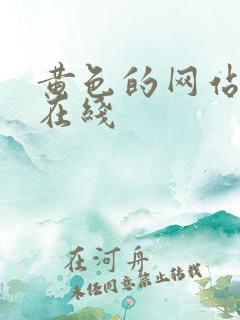 黄色的网站
在线
在河舟
未经同意禁止转载